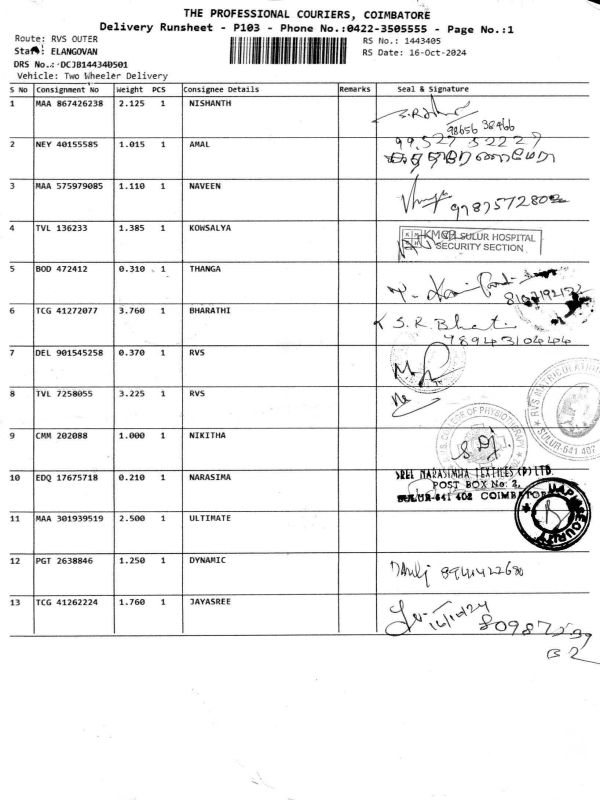 THE PROFESSIONAL COURIERS, COIMBATORE
Delivery Runsheet - P103 - Phone No.:0422-3505555 - Page No.:1
Route: RVS OUTER
RS No.: 1443405
Staff: ELANGOVAN
RS Date: 16-Oct-2024
DRS No.: DCJB144340501
Vehicle: Two Wheeler Delivery
S No Consignment No Weight PCS Consignee Details Remarks Seal & Signature
1 MAA 867426238 2.125 1 NISHANTH
98656 38466
2 NEY 40155585 1.015 1 AMAL
99527 52227
3 MAA 575979085 1.110 1 NAVEEN
4 TVL 136233 1.385 1 KOWSALYA
SULUR HOSPITAL
SECURITY SECTION
5 BOD 472412 0.310 1 THANGA
6 TCG 41272077 3.760 1 BHARATHI
S.R. Bharati
7894310444
7 DEL 901545258 0.370 1 RVS
8 TVL 7258055 3.225 1 RVS
RVS MATRICULATION
SULUR-641 402
9 CMM 202088 1.000 1 NIKITHA
COLLEGE OF PHYSIOTHERAPY
10 EDQ 17675718 0.210 1 NARASIMA
SREE NARASIMHA TEXTILES (P) LTD.
POST BOX No: 2,
SULUR-641 402 COIMBATORE
SECURITY
11 MAA 301939519 2.500 1 ULTIMATE
12 PGT 2638846 1.250 1 DYNAMIC
13 TCG 41262224 1.760 1 JAYASREE
16/10/24